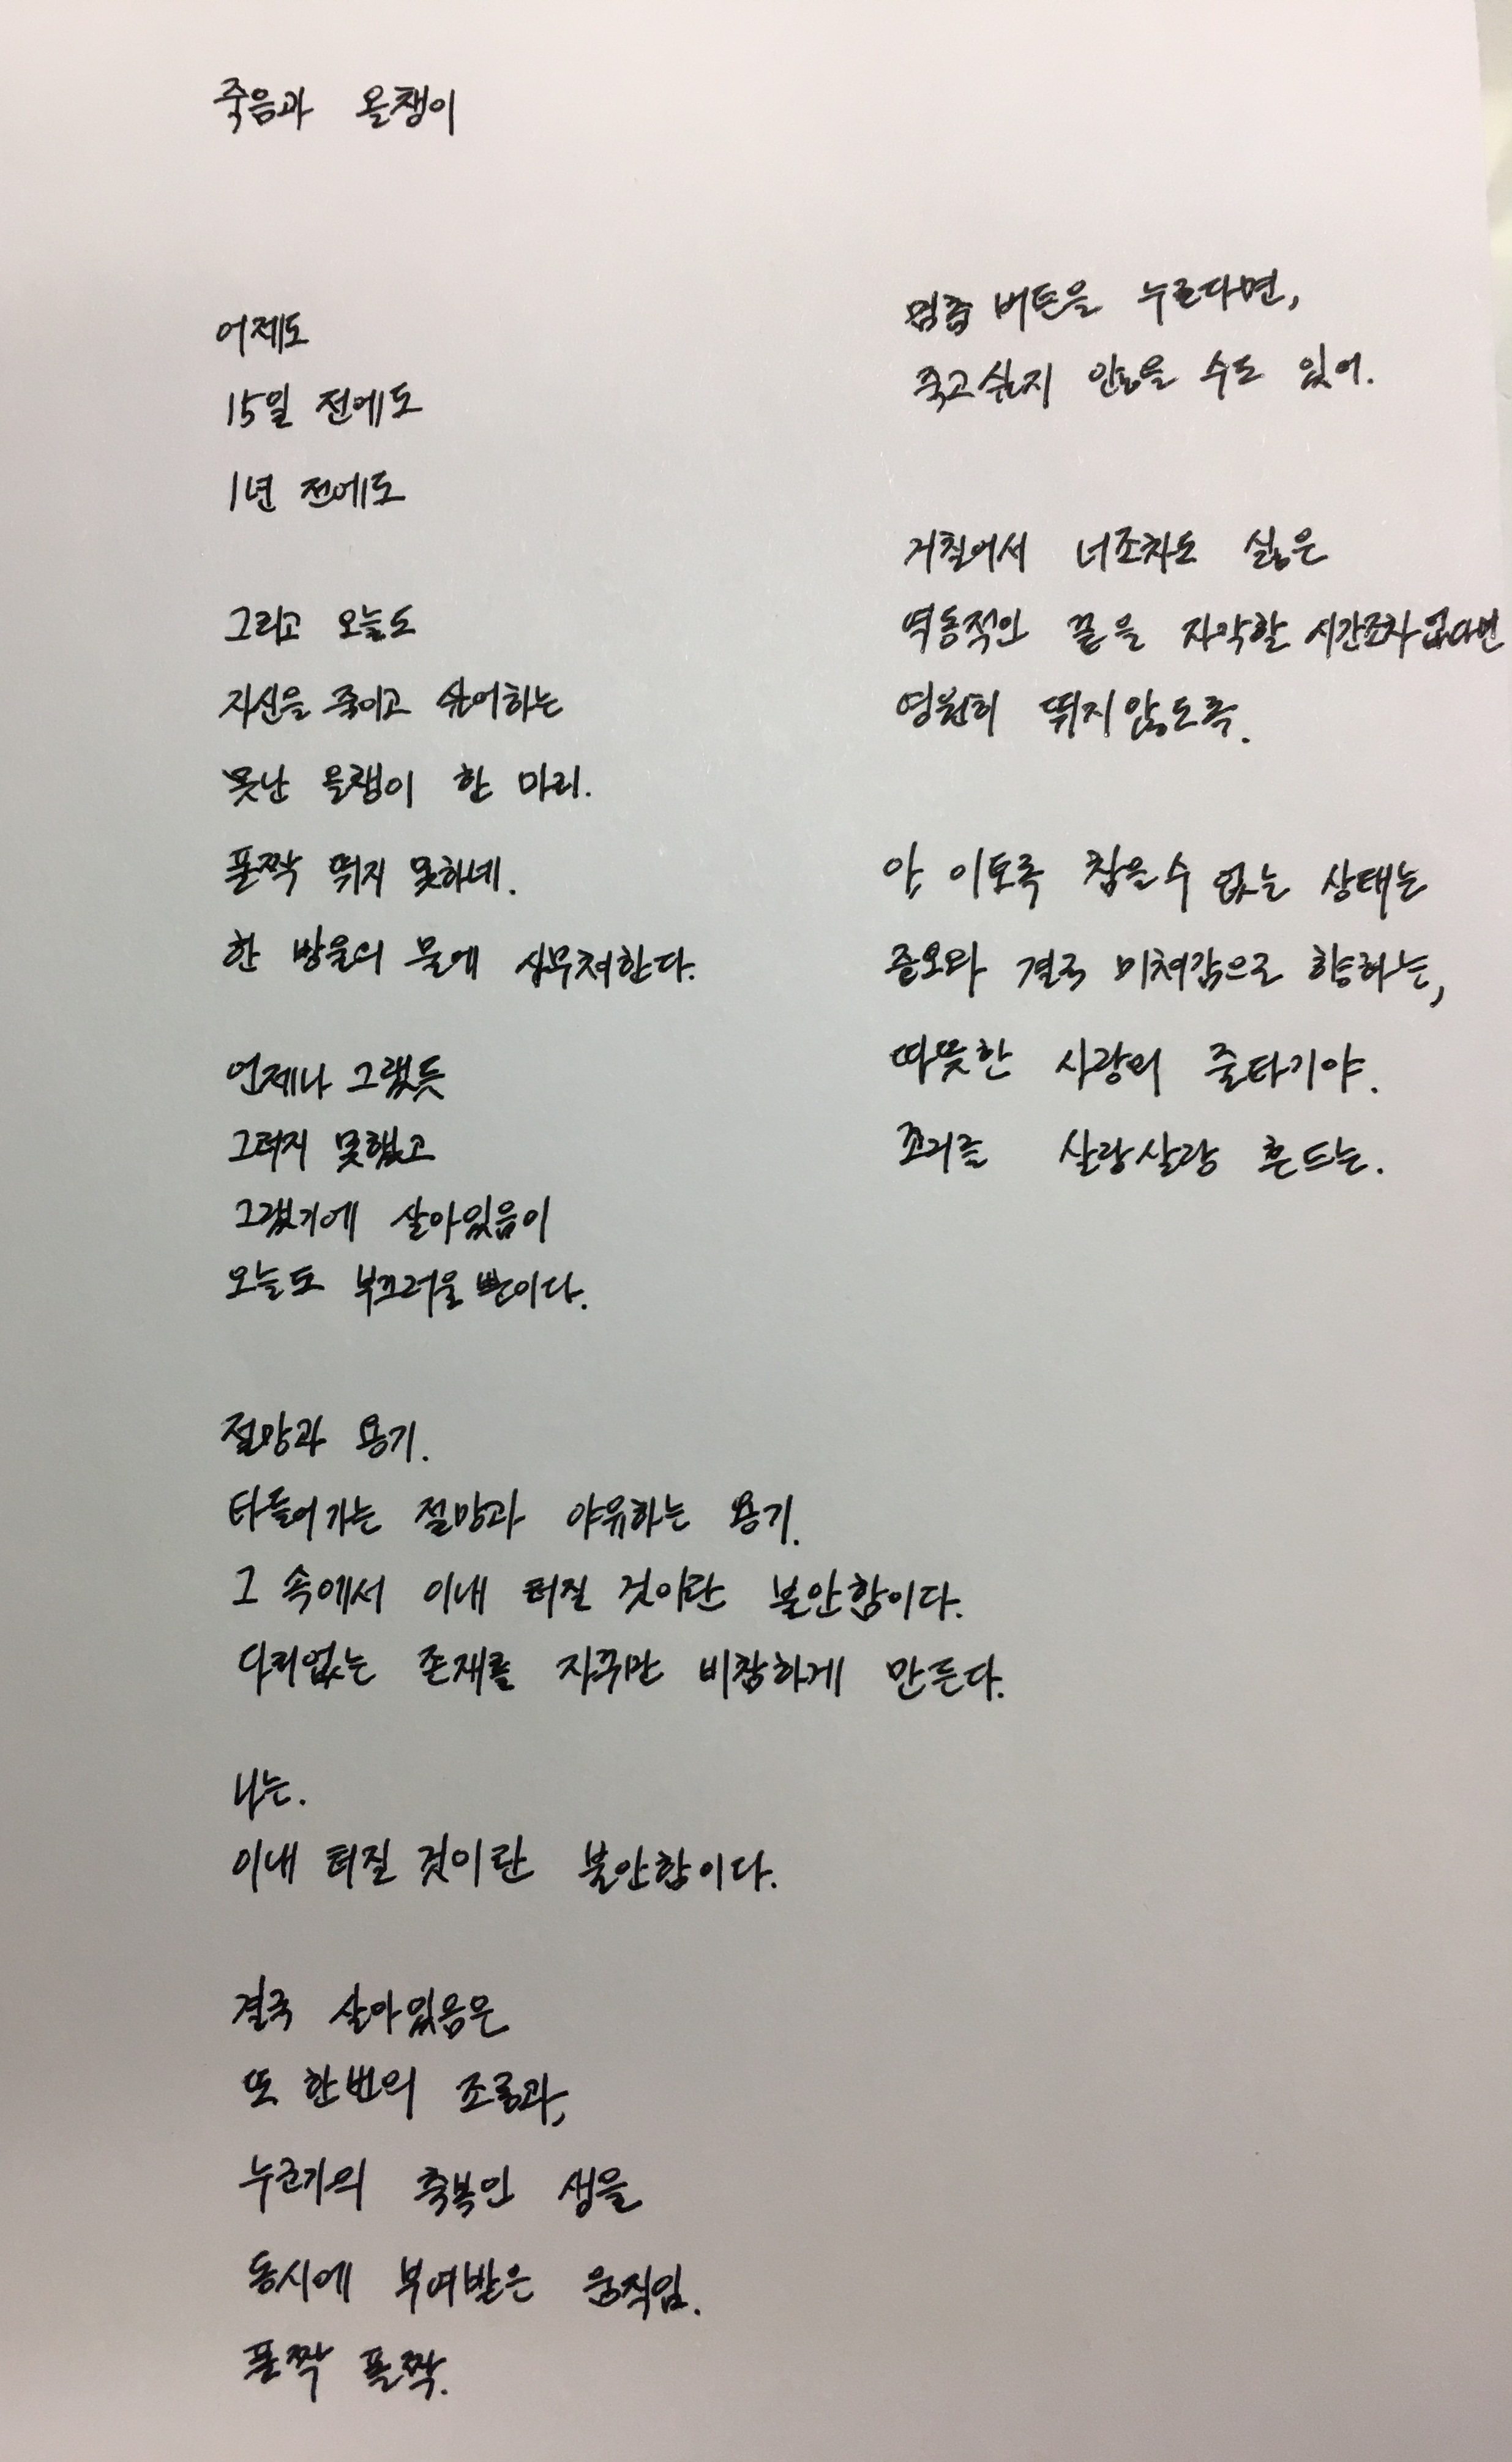 죽음과 올챙이
어제도
15일 전에도
1년 전에도
그리고 오늘도
자신을 죽이고 싶어하는
못난 올챙이 한 마리.
폴짝 뛰지 못하네.
한 방울의 물에 사무쳐한다.
언제나 그랬듯
그러지 못했고
그랬기에 살아있음이
오늘도 부끄러울 뿐이다.
절망과 용기.
타들어가는 절망과 야유하는 용기.
그 속에서 이내 터질 것이란 불안함이다.
다리없는 존재를 자꾸만 비참하게 만든다.
나는.
이내 터질 것이란 불안함이다.
결국 살아있음은
또 한번의 조롱과,
누군가의 축복인 생을
동시에 부여받은 움직임.
폴짝 폴짝.
멈춤 버튼을 누른다면,
죽고싶지 않을 수도 있어.
거칠어서 너조차도 싫은
역동적인 끝을 자각할 시간조차 없다면
영원히 뛰지 않도록.
아, 이토록 참을 수 없는 상태는
증오와 결국 미쳐감으로 향하는,
따뜻한 사랑의 줄타기야.
꼬리를 살랑살랑 흔드는.